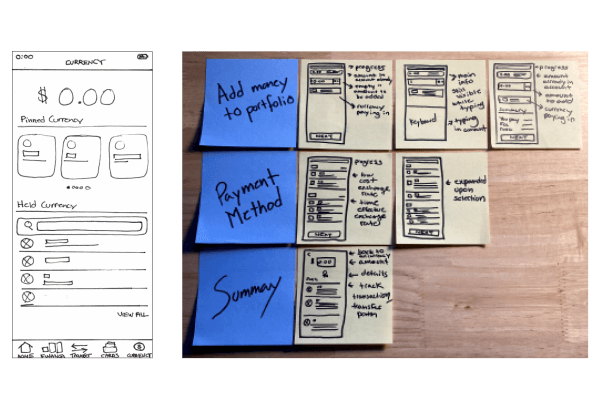 0:00
CURRENCY
$ 0.00
Pinned Currency
Held Currency
VIEW ALL
HOME
CARDS
CURRENCY
Add money
to portfolio
progress
amount in
account already
amount
to be added
currency
paying in
NEXT
main
info
still
visible
while
typing
Keyboard
typing
in amount
progress
amount
already in
account
amount
to add
currency
paying in
Summary
You pay
NEXT
Payment
Method
progress
low
cost
exchange
rate
time
effective
exchange
rate
NEXT
expanded
upon
selection
NEXT
Summary
back to
currency
amount
details
track
transaction
transfer